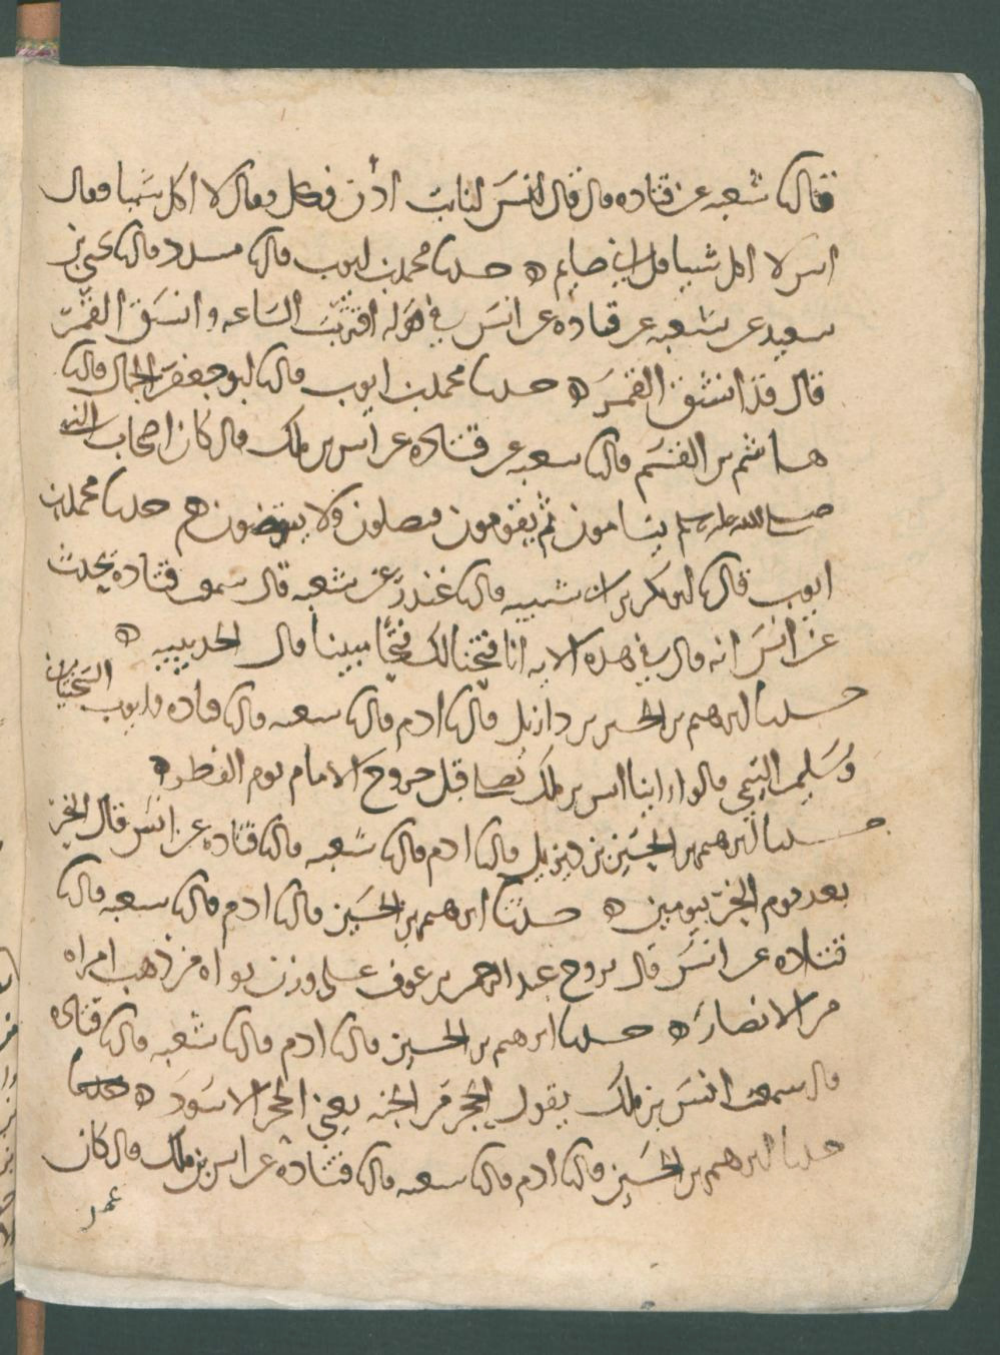 قال نا شعبه عن قتاده قال قال انس لثابت ادن فكل فقال لا اكل شيا فقال
انس لا اكل شيا قل اني صايم ه حدثنا محمد بن ايوب قال نا مسدد قال نا يحيى بن
سعيد عن شعبه عن قتاده عن انس في قوله اقتربت الساعه وانشق القمر
قال قد انشق القمر ه حدثنا محمد بن ايوب قال نا ابو جعفر الجمال قال نا
هاشم بن القسم قال نا شعبه عن قتاده عن انس بن ملك قال كان اصحاب النبي
صلى الله عليه وسلم ينامون ثم يقومون فيصلون ولا يتوضون ه حدثنا محمد بن
ايوب قال نا ابو بكر بن ابي شيبه قال نا غندر عن شعبه قال سمعت قتاده يحدث
عن انس انه قال في هذه الايه انا فتحنا لك فتحا مبينا قال الحديبيه ه
حدثنا ابرهيم بن الحسين بن ديزيل قال نا ادم قال نا شعبه قال نا قتاده وايوب السختياني
وسليمن التيمي قالوا راينا انس بن ملك يصلي قبل خروج الامام يوم الفطر ه
حدثنا ابرهيم بن الحسين بن ديزيل قال نا ادم قال نا شعبه قال نا قتاده عن انس قال
بعد يوم بيومين ه حدثنا ابرهيم بن الحسين قال نا ادم قال نا شعبه قال نا
قتاده عن انس قال تزوج عبد الرحمن بن عوف على وزن نواه من ذهب امراه
من الانصار ه حدثنا ابرهيم بن الحسين قال نا ادم قال نا شعبه قال نا قتاده
قال سمعت انس بن ملك يقول الحجر من الجنه يعني الحجر الاسود ه حدثنا
حدثنا ابرهيم بن الحسين قال نا ادم قال نا شعبه قال نا قتاده عن انس بن ملك قال كان
عمر